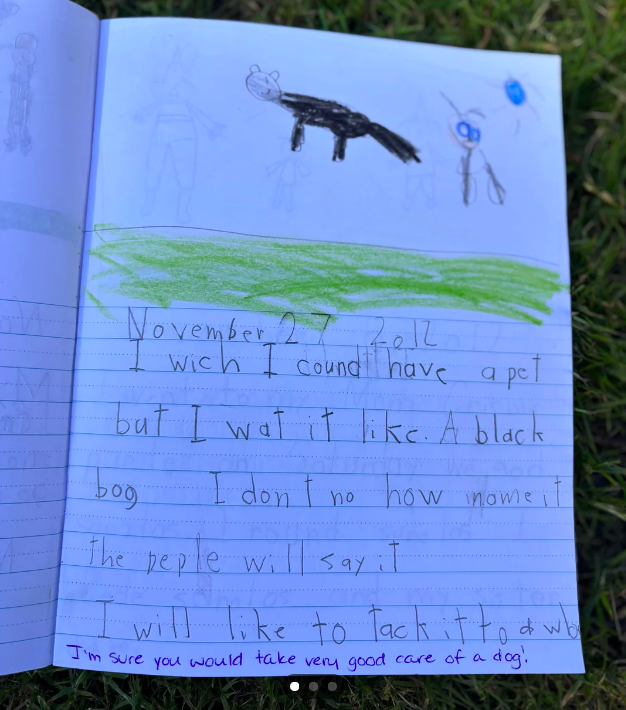 November 27 2012
I wich I cound have a pet
but I wat it like. A black
bog I don t no how name it
the peple will say it
I will like to tack it to a
I'm sure you would take very good care of a dog!